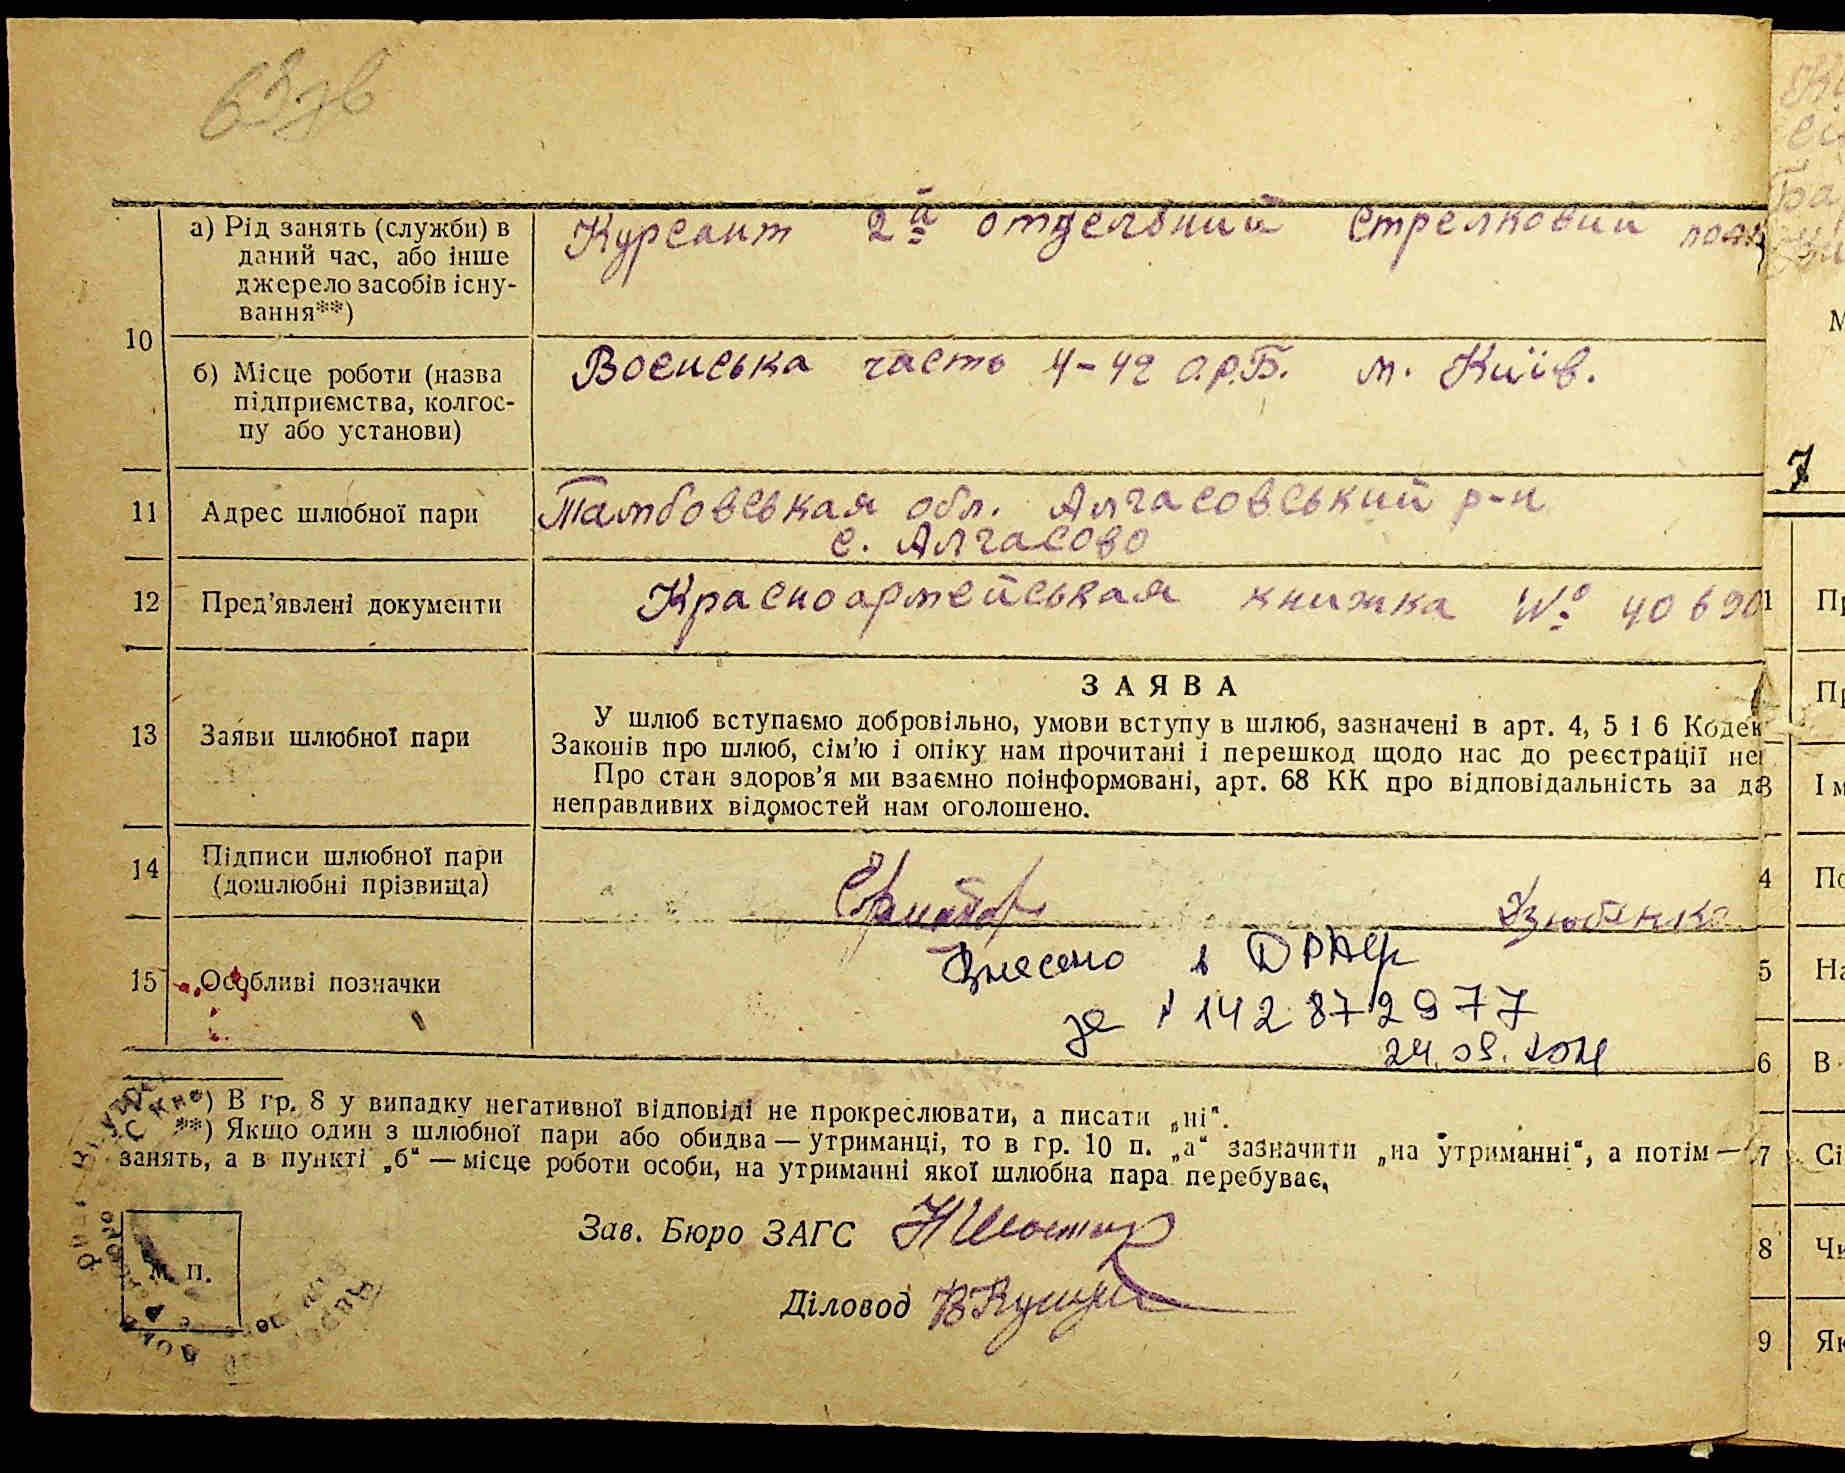 10
а) Рід занять (служби) в
даний час, або інше
джерело засобів існу-
вання**)
Курсант 2й отдельний стрелковий полк
б) Місце роботи (назва
підприємства, колгос-
пу або установи)
Воєнська часть 4-42 О.р.Б. м. Київ.
11 Адрес шлюбної пари
Тамбовськая обл. Алгасовський р-н
с. Алгасово
12 Пред’явлені документи
Красноармейськая книжка № 40690
13 Заяви шлюбної пари
ЗАЯВА
У шлюб вступаємо добровільно, умови вступу в шлюб, зазначені в арт. 4, 5 і 6 Кодек
Законів про шлюб, сім’ю і опіку нам прочитані і перешкод щодо нас до реєстрації не
Про стан здоров’я ми взаємно поінформовані, арт. 68 КК про відповідальність за да
неправдивих відомостей нам оголошено.
14 Підписи шлюбної пари
(дошлюбні прізвища)
15 Особливі позначки
Внесено в ДРАЦС
за № 142872977
24.09.2024
*) В гр. 8 у випадку негативної відповіді не прокреслювати, а писати „ні“.
**) Якщо один з шлюбної пари або обидва — утриманці, то в гр. 10 п. „а“ зазначити „на утриманні“, а потім —
занять, а в пункті „б“ — місце роботи особи, на утриманні якої шлюбна пара перебуває.
Зав. Бюро ЗАГС
Діловод
М. П.
7
1 Пр
Пр
3 І м
4 По
5 На
6 В
7 Сі
8 Чи
9 Як